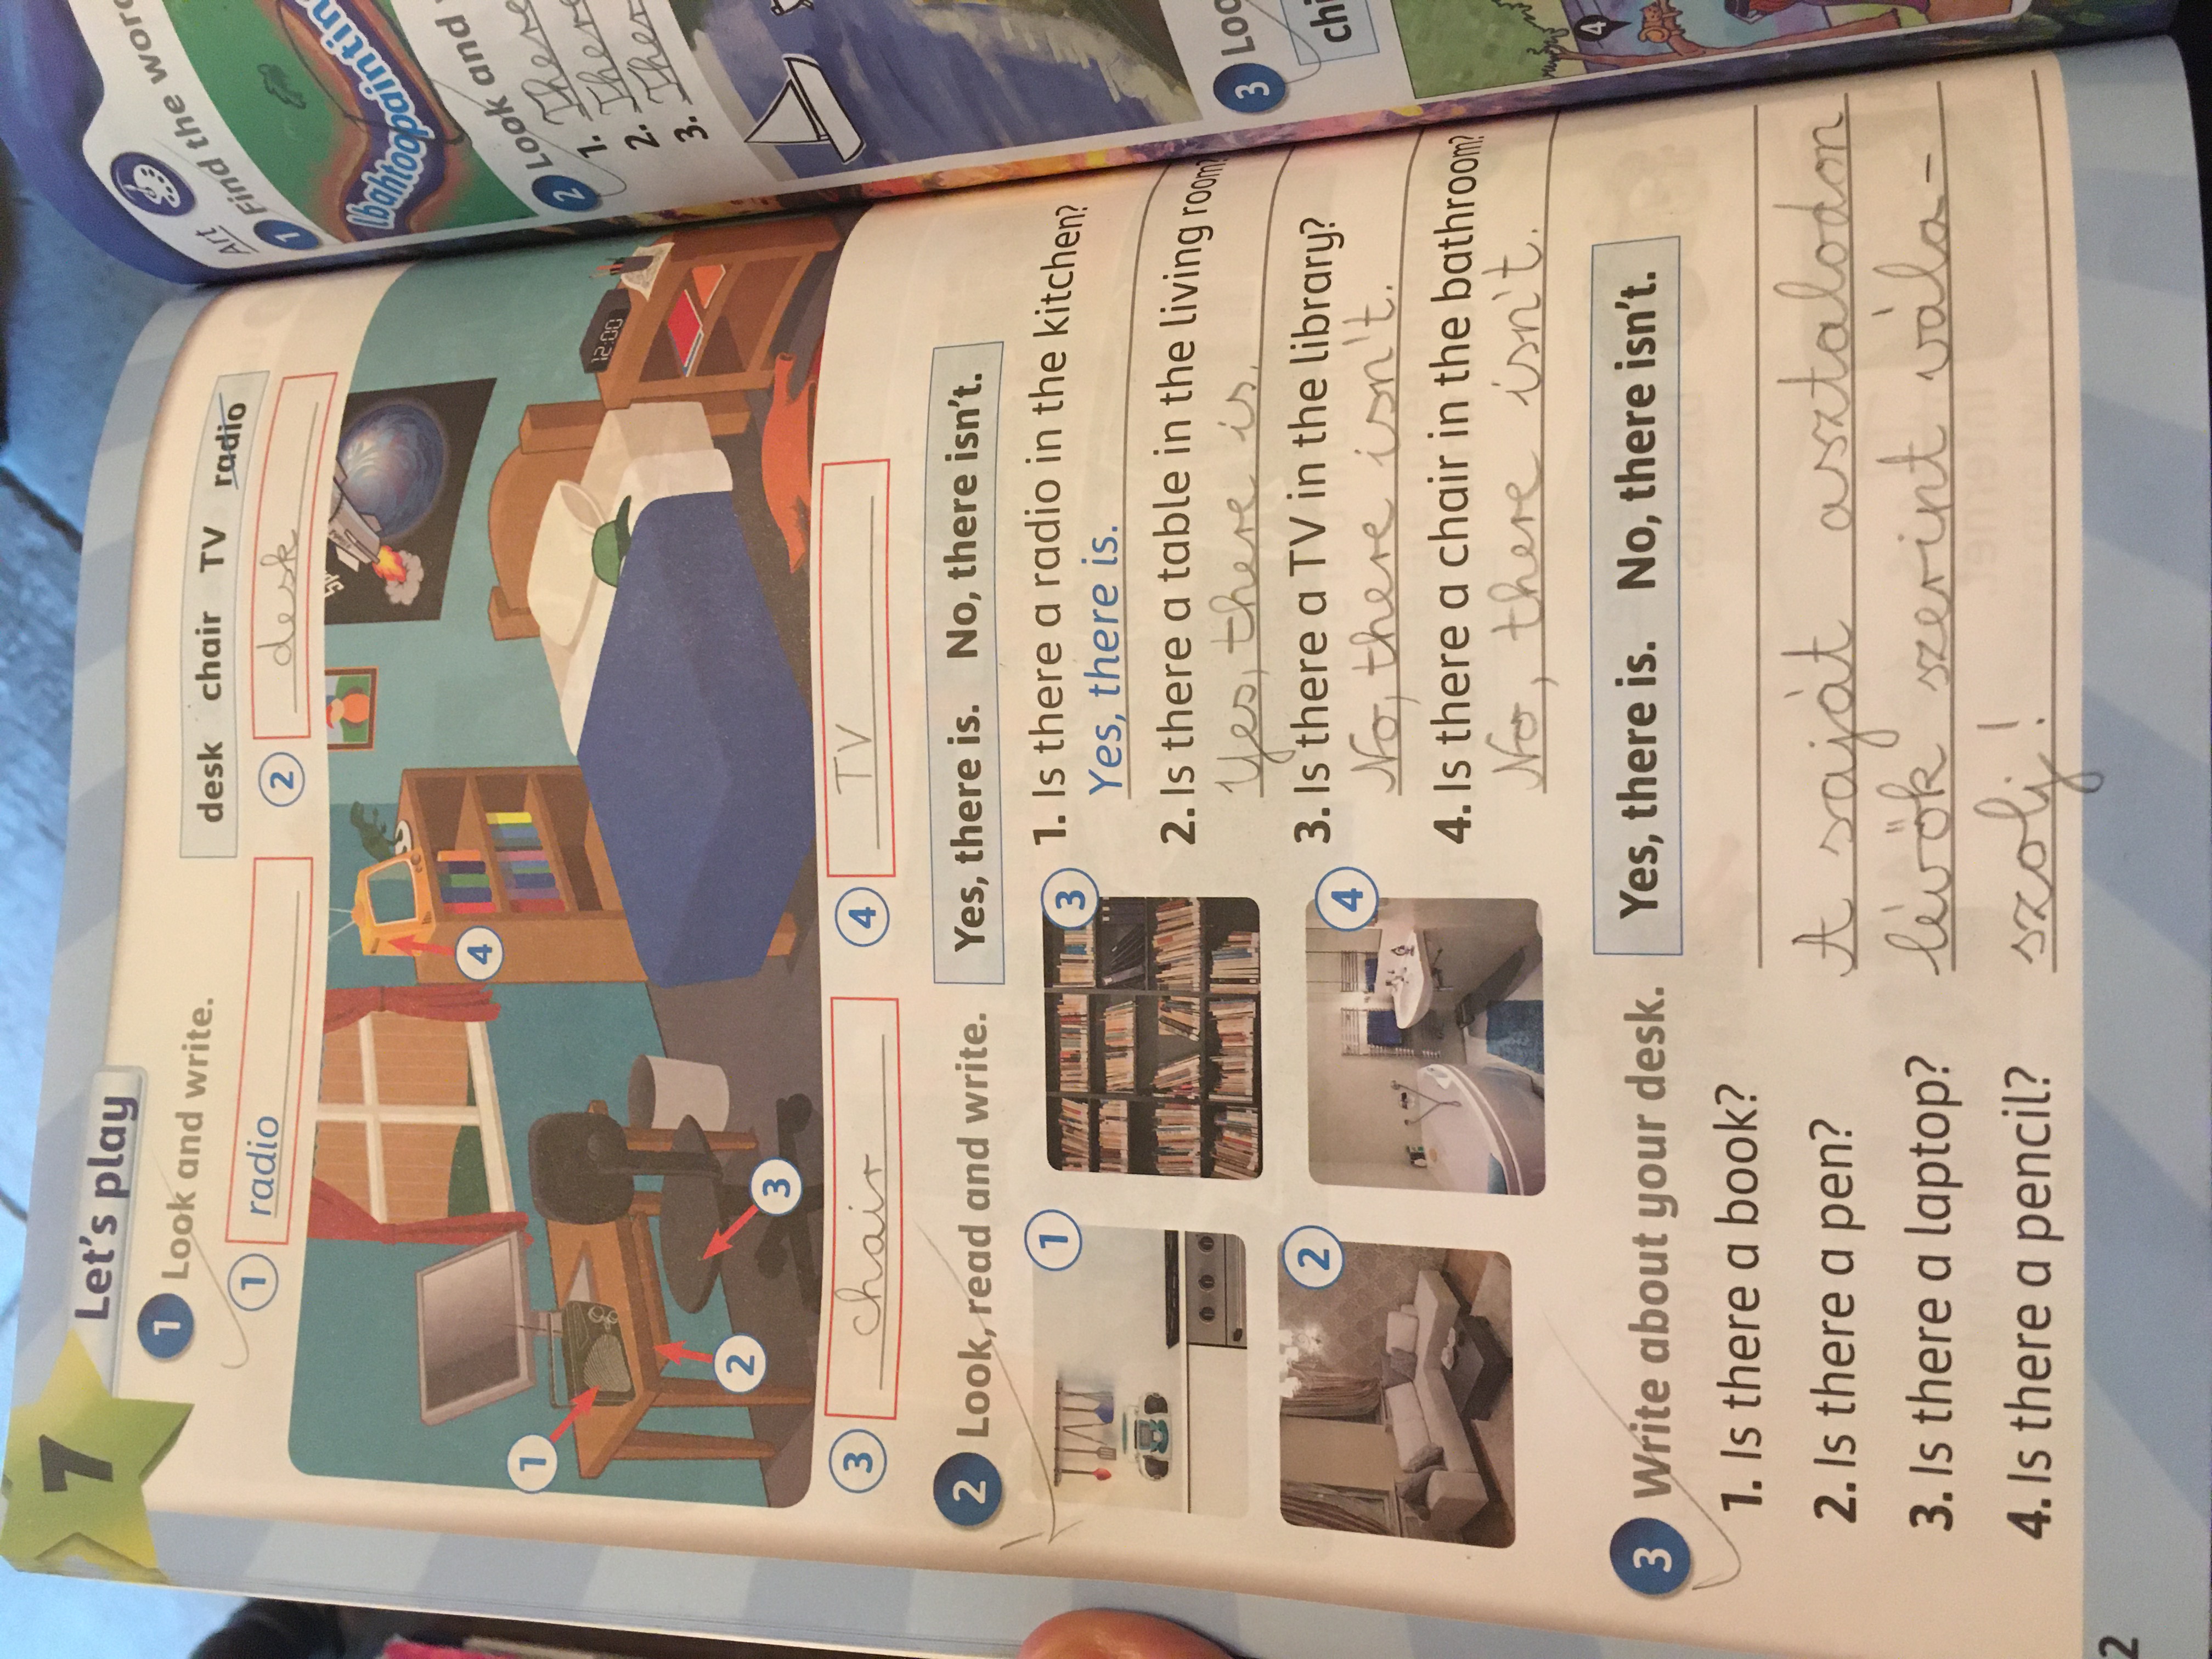 7
Let's play
1 Look and write.
desk chair TV radio
1 radio
2 desk
4
1
12:00
2
3
3 chair
4 TV
2 Look, read and write.
Yes, there is. No, there isn't.
1
3
2
4
1. Is there a radio in the kitchen?
Yes, there is.
2. Is there a table in the living room?
Yes, there is.
3. Is there a TV in the library?
No, there isn't.
4. Is there a chair in the bathroom?
No, there isn't.
3 Write about your desk.
Yes, there is. No, there isn't.
1. Is there a book?
2. Is there a pen? A saját asztalodon
3. Is there a laptop? lévők szerint vála-
4. Is there a pencil? szolj!
2
Art
1 Find the
lbahtoopainting
2 Look and
1. There
2. There
3. Ther
3
4